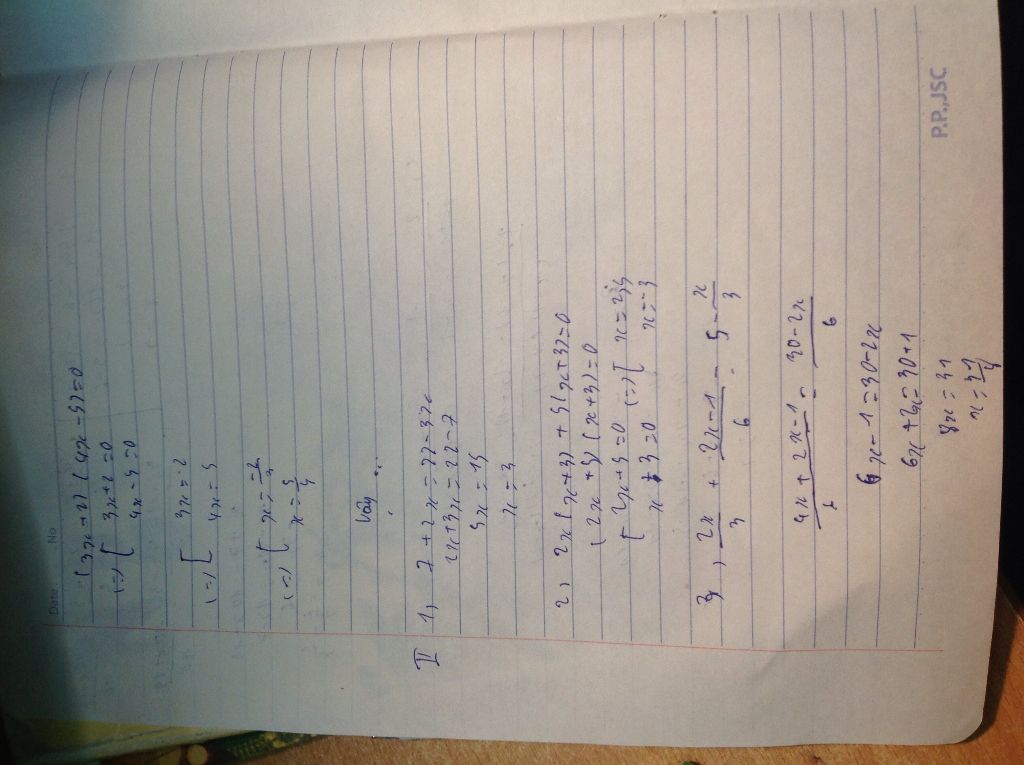 Date No
(3x+2) (4x-5)=0
(=) [ 3x+2=0
4x-5=0
(=) [ 3x=-2
4x=5
(=) [ x=-2/3
x=5/4
Vậy ...
II 1, 7+2x=22-3x
2x+3x=22-7
5x=15
x=3
2, 2x(x+3)+5(x+3)=0
(2x+5)(x+3)=0
[ 2x+5=0 (=) [ x=2,5
x+3=0 x=-3
3, 2x/3 + 2x-1/6 = 5-x/3
4x+2x-1/6 = 30-2x/6
6x-1=30-2x
6x+2x=30+1
8x=31
P.P.,JSC